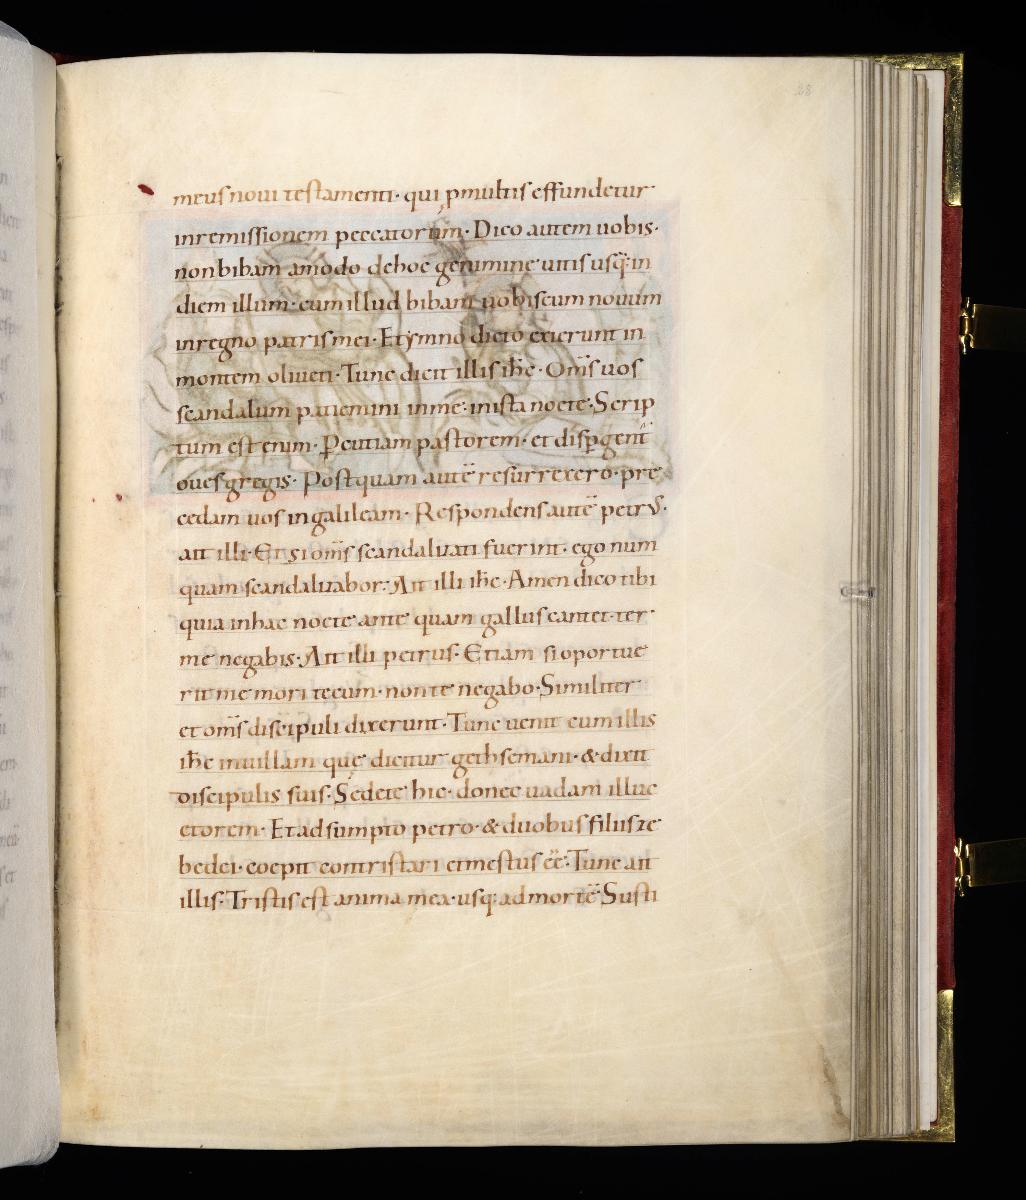 28
meus noui testamenti· qui pmultis effundetur·
inremissionem peccatorum· Dico autem uobis·
nonbibam amodo dehoc genimine uitis usq; in
diem illum· cum illud bibam uobiscum nouum
inregno patris mei· Etymno dicto exierunt in
montem oliueti· Tunc dicit illis ihc· Om̄s uos
scandalum patiemini inme· inista nocte· Scrip
tum est enim· Percutiam pastorem· et dispgent̄
oues gregis· Postquam autē resurrexero· pre
cedam uos ingalileam· Respondens autē petrus·
ait illi· Et si om̄s scandalizati fuerint· ego num
quam scandalizabor· Ait illi ihc· Amen dico tibi
quia inhac nocte ante quam gallus cantet· ter
me negabis· Ait illi petrus· Etiam si oportue
rit me mori tecum· non te negabo· Similiter
et om̄s discipuli dixerunt· Tunc uenit cum illis
ihc inuillam que dicitur gethsemani· & dixit
discipulis suis· Sedete hic· donec uadam illuc
etorem· Et adsumpto petro· & duobus filiis ze
bedei· coepit contristari et mestus eē· Tunc ait
illis· Tristis est anima mea· usq; ad mortē· Susti